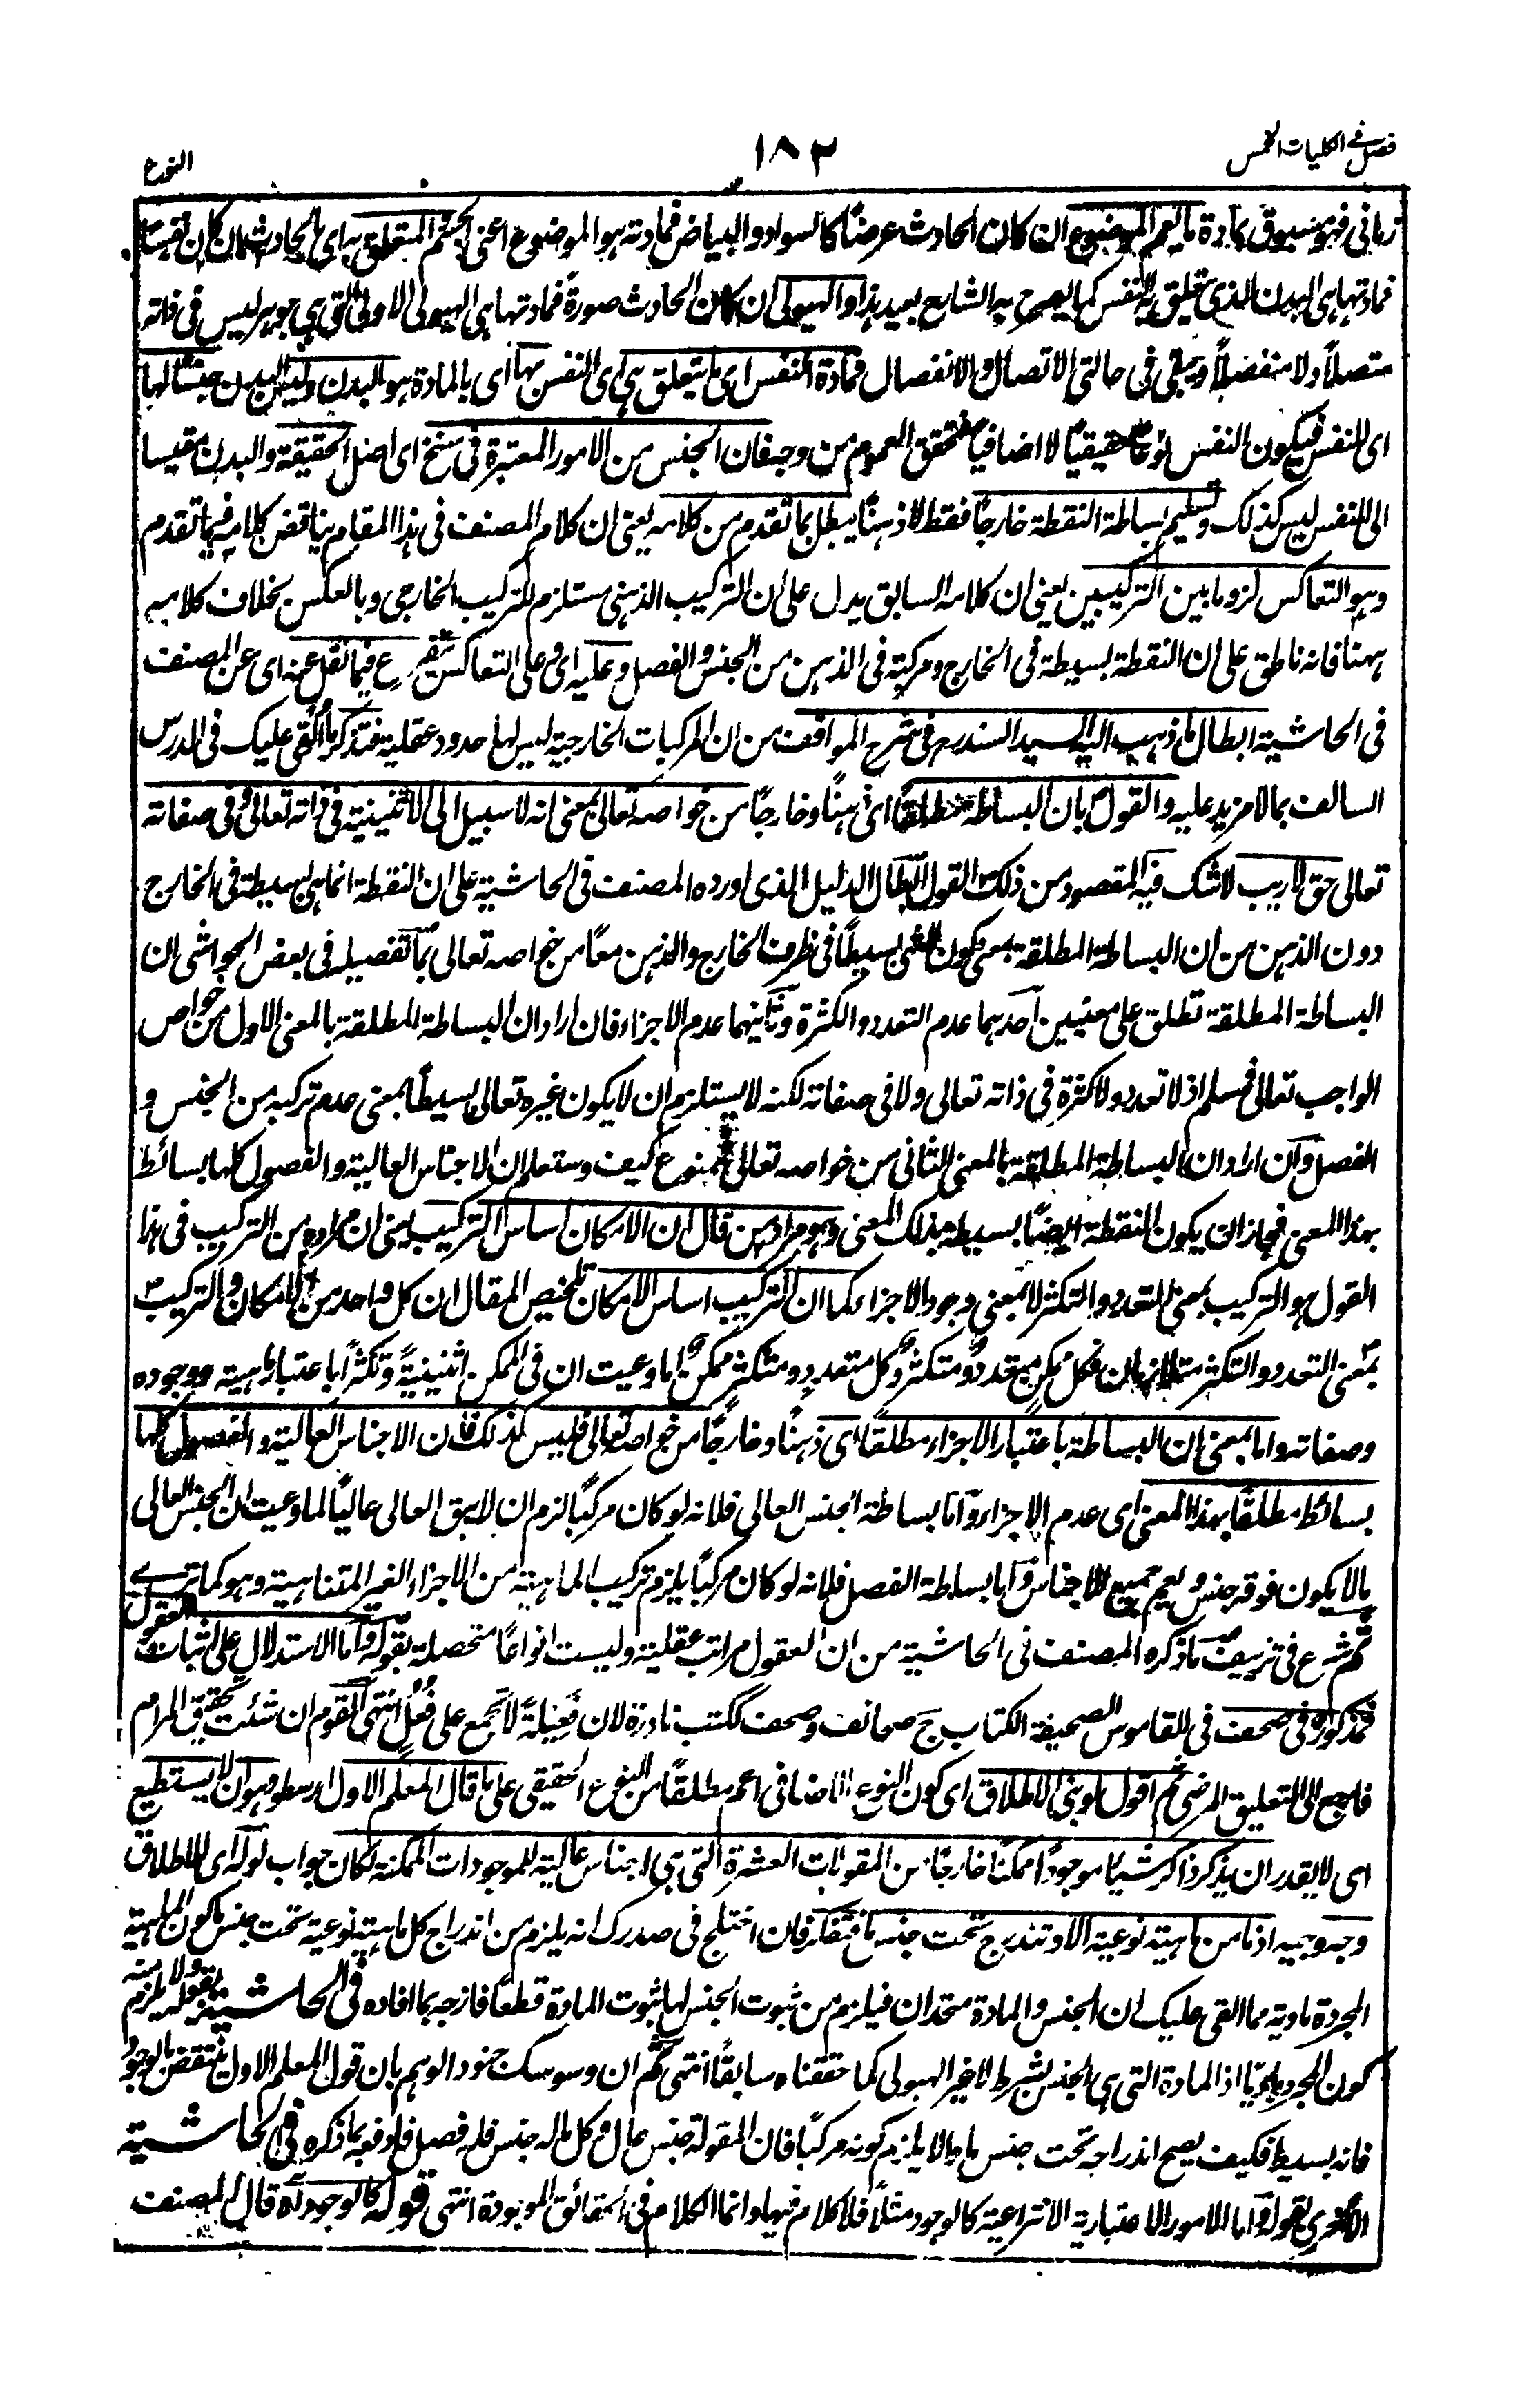 فصل في الكليات الخمس
١٨٢
النوع
زماني فهو مسبوق بمادة ما يعم الموضوع ان كان الحادث عرضًا كالسواد والبياض فمادته هو الموضوع اعني الجسم المتعلق به اي بالحادث ان كان نفسًا
فمادتها هي البدن الذي يتعلق به النفس كما يصرح به الشارح بعيد هذا والهيولى ان كان الحادث صورةً فمادتها هي الهيولى الاولى التي هي جوهر ليس في ذاته
متصلاً ولا منفصلاً ويبقى في حالتي الاتصال والانفصال فمادة النفس اي ما يتعلق هي اي النفس بها اي بالمادة هو البدن وليس البدن جنسًا لها
اي للنفس فيكون النفس نوعًا حقيقيًا لا اضافيًا فتحقق العموم من وجه فان الجنس من الامور المعتبرة في سنخ اي اصل الحقيقة والبدن مقيسا
الى النفس ليس كذلك وتسليم بساطة النقطة خارجًا فقط لا ذهنًا يبطل بما تقدم من كلامه يعني ان كلام المصنف في هذا المقام يناقض كلامه فيما تقدم
وهو التعاكس لزوما بين التركيبين يعني ان كلامه السابق يدل على ان التركيب الذهني مستلزم للتركيب الخارجي وبالعكس بخلاف كلامه
ههنا فانه ناطق على ان النقطة بسيطة في الخارج ومركبة في الذهن من الجنس والفصل وعليه اي على التعاكس متفرع فيما نقل عنه اي عن المصنف
في الحاشية ابطال ما ذهب اليه السيد السند رح في شرح المواقف من ان المركبات الخارجية ليس لها حدود عقلية فتذكر ما القي عليك في الدرس
السالف بما لا مزيد عليه والقول بان البساطة مطلقًا اي ذهنًا وخارجًا من خواصه تعالى بمعنى انه لا سبيل الى الاثنينية في ذاته تعالى و في صفاته
تعالى حق لا ريب لا شك فيه المقصود من ذلك القول ابطال الدليل الذي اورده المصنف في الحاشية على ان النقطة انما هي بسيطة في الخارج
دون الذهن من ان البساطة المطلقة بمعنى كون الشئ بسيطًا في ظرف الخارج والذهن معًا من خواصه تعالى بما تفصيله في بعض الحواشي ان
البساطة المطلقة تطلق على معنيين احدهما عدم التعدد والكثرة وثانيهما عدم الاجزاء فان اراد ان البساطة المطلقة بالمعنى الاول من خواص
الواجب تعالى فمسلم اذ لا تعدد ولا كثرة في ذاته تعالى ولا في صفاته لكنه لا يستلزم ان لا يكون غيره تعالى بسيطًا بمعنى عدم تركبه من الجنس و
الفصل وان اراد ان البساطة المطلقة بالمعنى الثاني من خواصه تعالى فممنوع كيف وستعلم ان الاجناس العالية والفصول كلها بسائط
بهذا المعنى فجاز ان يكون النقطة ايضًا بسيطة بذلك المعنى وهو مراد من قال ان الامكان اساس التركيب يعني ان مراده من التركيب في هذا
القول هو التركيب بمعنى التعدد والتكثر لا بمعنى وجود الاجزاء كما ان التركيب اساس الامكان تلخيص المقال ان كل واحد من الامكان والتركيب
بمعنى التعدد والتكثر متلازمان فكل ممكن متعدد ومتكثر وكل متعدد ومتكثر ممكن اما وعيت ان في الممكن اثنينيةً وتكثرًا باعتبار ماهيته ووجوده
وصفاته واما بمعنى ان البساطة باعتبار الاجزاء مطلقًا اي ذهنًا وخارجًا من خواصه تعالى فليس كذلك فان الاجناس العالية والفصول كلها
بسائط مطلقًا بهذا المعنى اي عدم الاجزاء واما بساطة الجنس العالي فلانه لو كان مركبًا لزم ان لا يبق العالي عاليًا لما وعيت ان الجنس العالي
ما لا يكون فوقه جنس ويعم جميع الاجناس واما بساطة الفصل فلانه لو كان مركبًا يلزم تركيب الماهية من الاجزاء الغير المتناهية وهو كما ترى
ثم شرع في تزييف ما ذكره المصنف في الحاشية من ان العقول مراتب عقلية وليست انواعًا متحصلة بقوله واما الاستدلال على اثبات العقول
فمذكور في صحف في القاموس الصحيفة الكتاب ج صحائف وصحف ككتب نادرة لان فَعِيلةً لا تجمع على فُعُلٍ انتهى القوم ان شئت تحقيق المرام
فارجع الى التعليق المرضي ثم اقول لو بني الاطلاق اي كون النوع الاضافي اعم مطلقًا من النوع الحقيقي على ما قال المعلم الاول ارسطو وهو ان لا يستطيع
اي لا يقدر ان يذكر ذاكر شيئا موجودًا ممكنًا خارجًا من المقولات العشرة التي هي اجناس عالية للموجودات الممكنة لكان جواب لو له اى للاطلاق
وجه وجيه اذ ما من ماهية نوعية الا وتندرج تحت جنس ما فتفكر فان اختلج في صدرك انه يلزم من اندراج كل ماهية نوعية تحت جنس ما كون الماهية
المجردة مادية مما القي عليك ان الجنس والمادة متحدان فيلزم من ثبوت الجنس لها ثبوت المادة قطعًا فازجه بما افاده في الحاشية بقوله ولا يلزم منه
كون المجرد ماديا اذ المادة التي هي الجنس بشرط لا غير الهيولى كما حققناه سابقًا انتهى ثم ان وسوسك جنود الوهم بان قول المعلم الاول ينتقض بالوجود
فانه بسيط فكيف يصح اندراجه تحت جنس ما والا يلزم كونه مركبًا فان المقولة جنس عال وكل ماله جنس فله فصل فادفعه بما ذكره في الحاشية
الاخرى بقوله واما الامور الاعتبارية الانتزاعية كالوجود مثلاً فلا كلام فيها وانما الكلام في الحقائق الموجودة انتهى قوله كالوجود له قال المصنف